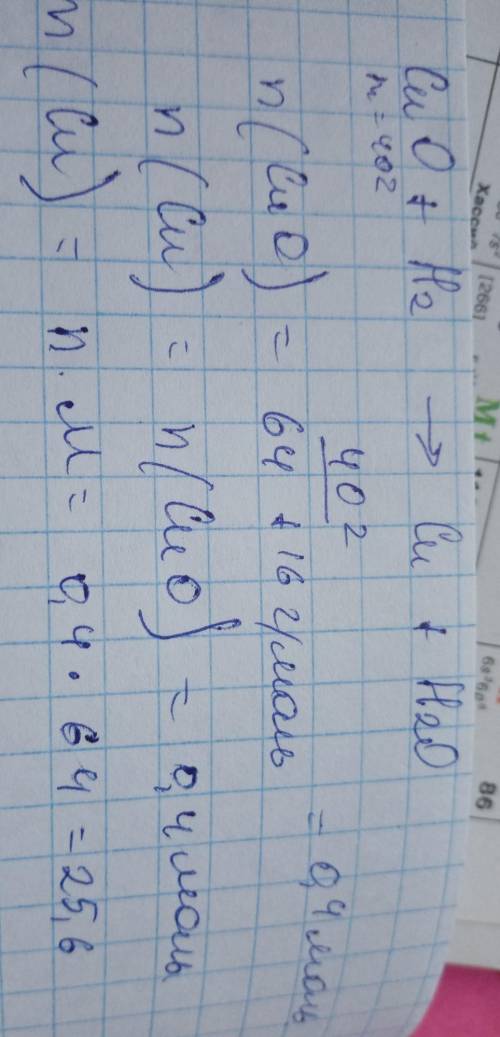 CuO + H2 → Cu + H2O
m = 40г
n(CuO) = 40г / 64 + 16 г/моль = 0,4 моль
n(Cu) = n(CuO) = 0,4 моль
n(Cu) = n · M = 0,4 · 64 = 25,6
[266]
M
86